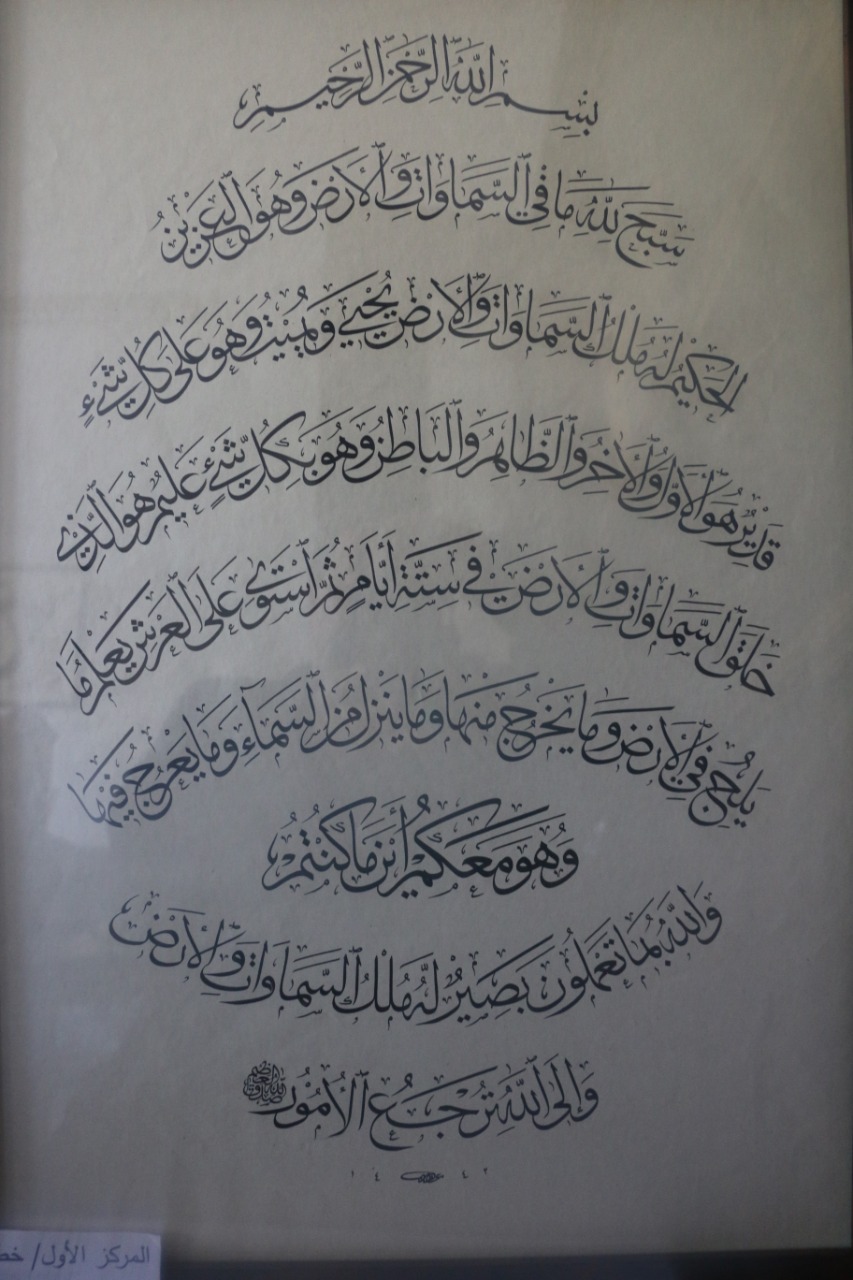 بِسْمِ اللَّهِ الرَّحْمَٰنِ الرَّحِيمِ
سَبَّحَ لِلَّهِ مَا فِي السَّمَاوَاتِ وَالْأَرْضِ وَهُوَ الْعَزِيزُ
الْحَكِيمُ لَهُ مُلْكُ السَّمَاوَاتِ وَالْأَرْضِ يُحْيِي وَيُمِيتُ وَهُوَ عَلَى كُلِّ شَيْءٍ
قَدِيرٌ هُوَ الْأَوَّلُ وَالْآخِرُ وَالظَّاهِرُ وَالْبَاطِنُ وَهُوَ بِكُلِّ شَيْءٍ عَلِيمٌ هُوَ الَّذِي
خَلَقَ السَّمَاوَاتِ وَالْأَرْضَ فِي سِتَّةِ أَيَّامٍ ثُمَّ اسْتَوَى عَلَى الْعَرْشِ يَعْلَمُ مَا
يَلِجُ فِي الْأَرْضِ وَمَا يَخْرُجُ مِنْهَا وَمَا يَنْزِلُ مِنَ السَّمَاءِ وَمَا يَعْرُجُ فِيهَا
وَهُوَ مَعَكُمْ أَيْنَ مَا كُنْتُمْ
وَاللَّهُ بِمَا تَعْمَلُونَ بَصِيرٌ لَهُ مُلْكُ السَّمَاوَاتِ وَالْأَرْضِ
وَإِلَى اللَّهِ تُرْجَعُ الْأُمُورُ
١ ٤ ٤ ٢
المركز الأول/ خط